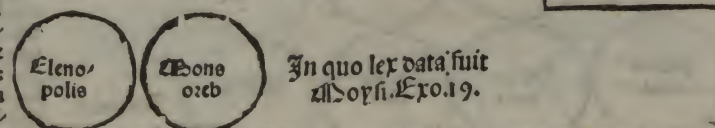 Eleno⸗
polis
Mons
oreb
In quo lex data fuit
Moysi.Exo.19.